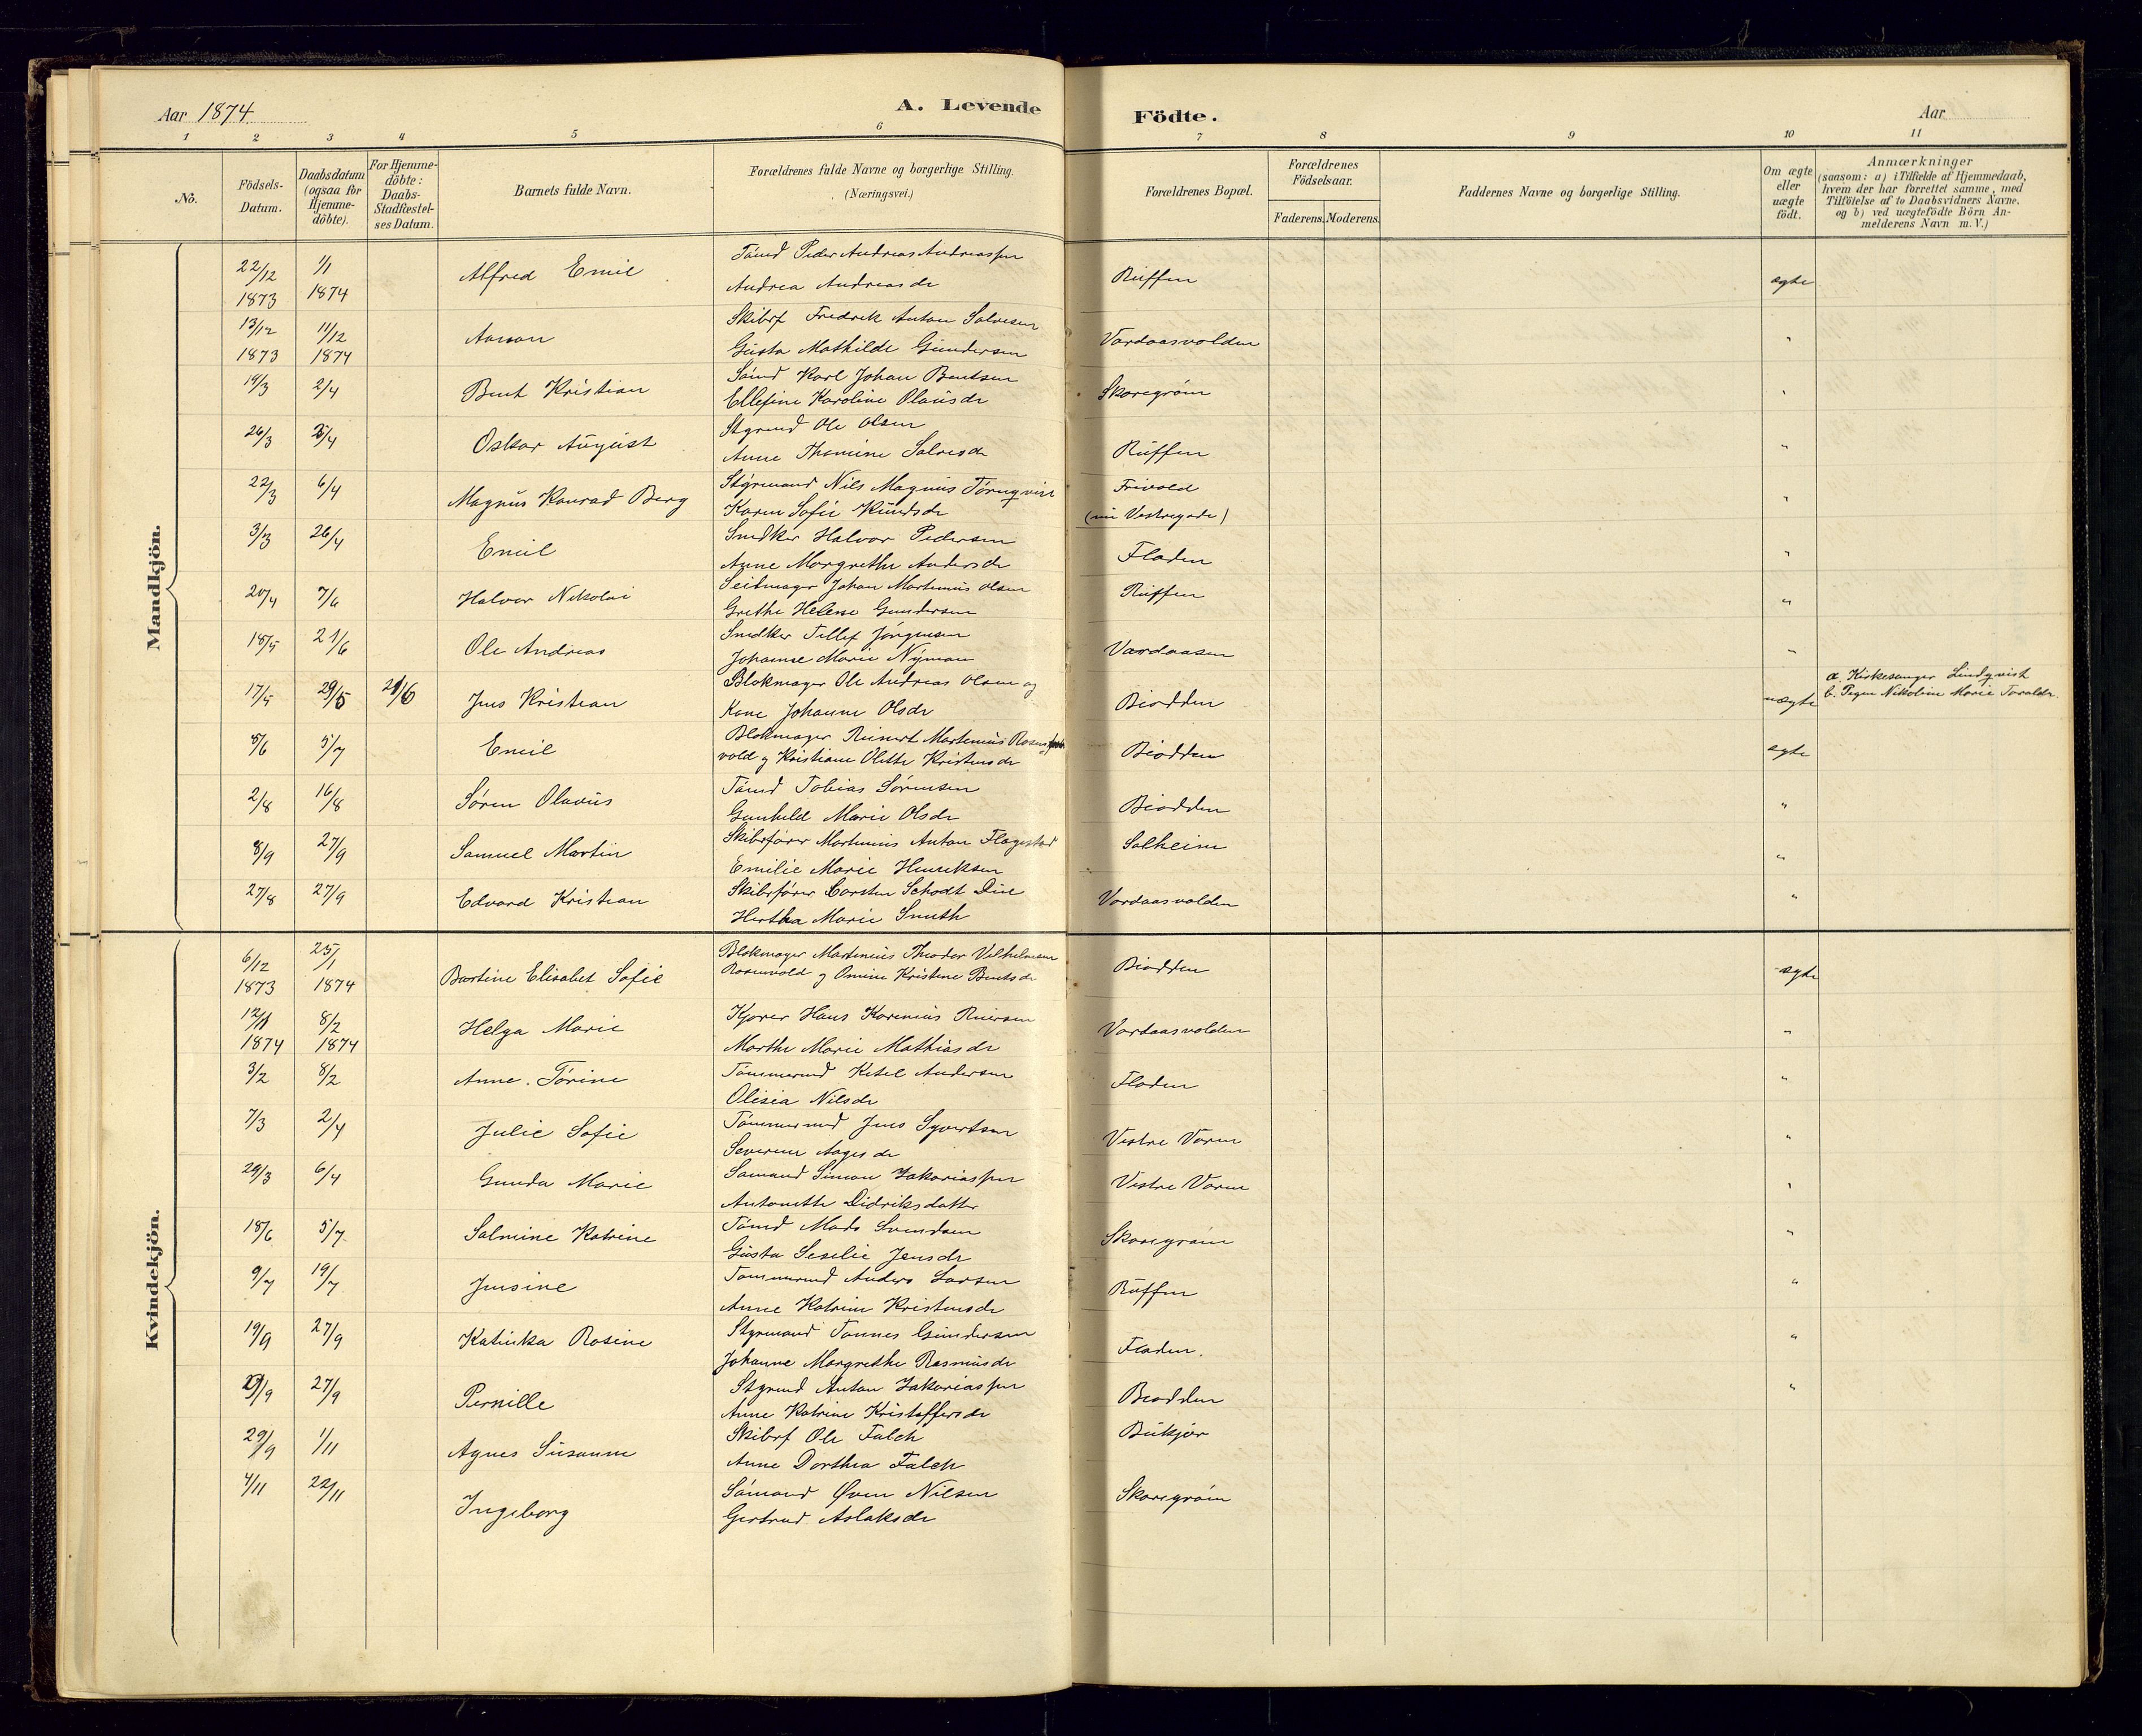 Aar 1874
A. Levende
Födte.
Aar
1 2 3 4 5 6 7 8 9 10 11
No.
Födsels-Datum.
Daabsdatum (ogsaa for Hjemme-döbte).
For Hjemme-döbte: Daabs-Stadfæstel-ses Datum.
Barnets fulde Navn.
Forældrenes fulde Navne og borgerlige Stilling.
(Næringsvei.)
Forældrenes Bopæl.
Forældrenes Födselsaar.
Faderens. Moderens.
Faddernes Navne og borgerlige Stilling.
Om ægte eller uægte födt.
Anmærkninger
(saasom: a) i Tilfælde af Hjemmedaab,
hvem der har forrettet samme, med
Tilföielse af to Daabsvidners Navne.
og b) ved uægtefödte Börn An-
melderens Navn m.V.)
Mandkjön.
22/12 1873 1/1 1874 Alfred Emil Tömd Peder Andreas Andreassen Ruffen ægte
Andrea Andreasdr
13/12 1873 11/12 1874 Aanon Skibsf Fredrik Anton Salvesen Vardaasvolden "
Gusta Mathilde Gundersen
19/3 2/4 Bent Kristian Sömd Karl Johan Bentsen Skoregröm "
Ellefine Karoline Olausdr
26/3 3/4 Oskar August Stgrmd Ole Olsen Ruffen "
Anne Thomine Salvesdr
22/3 6/4 Magnus Konrad Berg Styrmand Nils Magnus Törnqvist Frivold "
Karen Sofie Knudsdr (nu Vestregade)
3/3 26/4 Emil Snedker Halvor Pedersen Fladen "
Anne Margrethe Andersdr
20/4 7/6 Halvor Nikolai Seilmager Johan Martinius Olsen Ruffen "
Grethe Helene Gundersen
18/5 21/6 Ole Andreas Snedker Tellef Jörgensen Vardaasen "
Johanne Marie Nyman
17/5 29/5 21/6 Jens Kristian Blokmager Ole Andreas Olsen og Biodden uægte a. Kirkesanger Lindqvist
Kone Johanne Olsdr b. Pigen Nikoline Marie Toraldr.
8/6 5/7 Emil Blokmager Reinert Martinius Rosen Biodden ægte
vold og Kristiane Olette Kristensdr
2/8 16/8 Sören Olavus Tömd Tobias Sörensen Biodden "
Gunhild Marie Olsdr
8/9 27/9 Samuel Martin Skibsförer Martinius Anton Flagestad Solheim "
Emilie Marie Henriksen
27/8 27/9 Edvard Kristian Skibsförer Carsten Schodt Due Vardaasvolden "
Hertha Marie Smith
Kvindekjön.
6/12 1873 25/1 1874 Bartine Elisabet Sofie Blokmager Martinius Theodor Vilhelmsen Biodden ægte
Rosenvold og Omine Kristine Bentsdr
12/1 1874 8/2 1874 Helga Marie Kjörer Hans Karenius Reiersen Vardaasvolden "
Marthe Marie Mathiasdr
3/2 8/2 Anne. Törine Tömmermd Ketel Andersen Fladen "
Olisia Nilsdr
7/3 2/4 Julie Sofie Tömmermd Jens Syvertsen Vestre Voren "
Severine Aagesdr
29/3 6/4 Gunda Marie Sömand Simon Zakariassen Vestre Voren "
Antonette Didriksdatter
18/6 5/7 Salmine Katrine Tömd Mads Svendsen Skoregröm "
Gusta Seselie Jensdr
9/7 19/7 Jensine Tömmermd Anders Larsen Ruffen "
Anne Katrine Kristensdr
19/9 27/9 Katinka Rosine Styrmand Tönnes Gundersen Fladen. "
Johanne Margrethe Rasmusdr
27/9 Pernille Stgrmd Anton Zakariassen Biodden "
Anne Katrine Kristoffersdr
29/9 1/11 Agnes Susanne Skibsf Ole Falch Bukjær
Anne Dorthea Falch
4/11 22/11 Ingeborg Sömand Öven Nilsen Skoregröm
Gertrud Aslaksdr